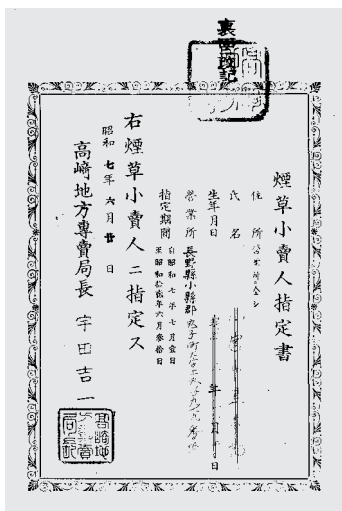 裏面改記
煙草小賣人指定書
住所
氏名
生年月日 年 月 日
營業所 長野縣小縣郡丸子町
指定期間 自昭和七年七月壹日
至昭和拾貳年六月參拾日
右煙草小賣人ニ指定ス
昭和七年六月廿日
高崎地方專賣局長 宇田吉一
高崎地方專賣局長